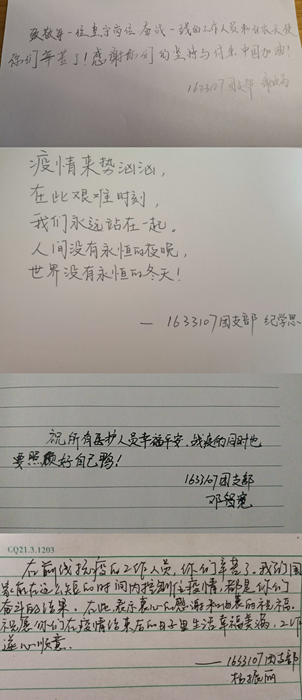 致敬每一位坚守岗位奋战一线的工作人员和白衣天使
你们辛苦了！感谢你们的坚持与付出 中国加油！
1633107团支部
疫情来势汹汹，
在此艰难时刻，
我们永远站在一起。
人间没有永恒的夜晚，
世界没有永恒的冬天！
— 1633107团支部 纪学思
祝所有医护人员幸福平安，战疫的同时也
要照顾好自己鸭！
1633107团支部
邓智宽
CQ21.3.1203
在前线抗疫的工作人员，你们辛苦了。我们国
家能在这么短的时间内控制住疫情，都是你们
奋斗的结果。在此，表示衷心的感谢和由衷的祝福。
祝愿你们在疫情结束后的日子里生活幸福美满，工作
遂心顺意。
—— 1633107团支部
杨振丽